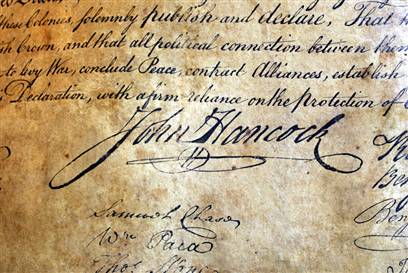 these Colonies, solemnly publish and declare, That
Crown, and that all political connection between them
to levy War, conclude Peace, contract Alliances, establish
Declaration, with a firm reliance on the protection of
John Hancock
Samuel Chase
Wm. Paca
Thos. Stone